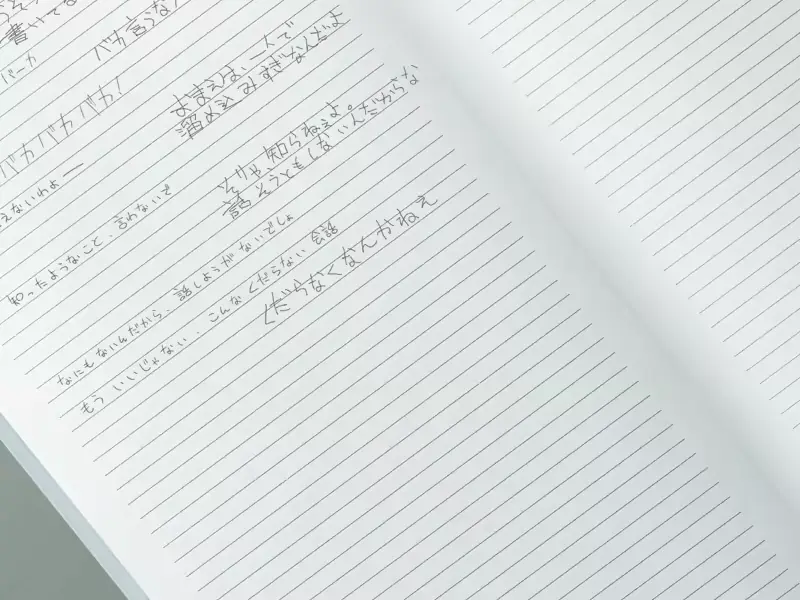 書いてな
バーカ
バカ言うな
バカバカバカ!
おまえは、一人で
溜めこみすぎなんだよ
えないわよー
そりゃ、知らねぇよ。
話そうともしないんだからな
知ったようなこと、言わないで
なにもないんだから、話しようがないでしょ
もういいじゃない、こんなくだらない会話
くだらなくなんかねぇ